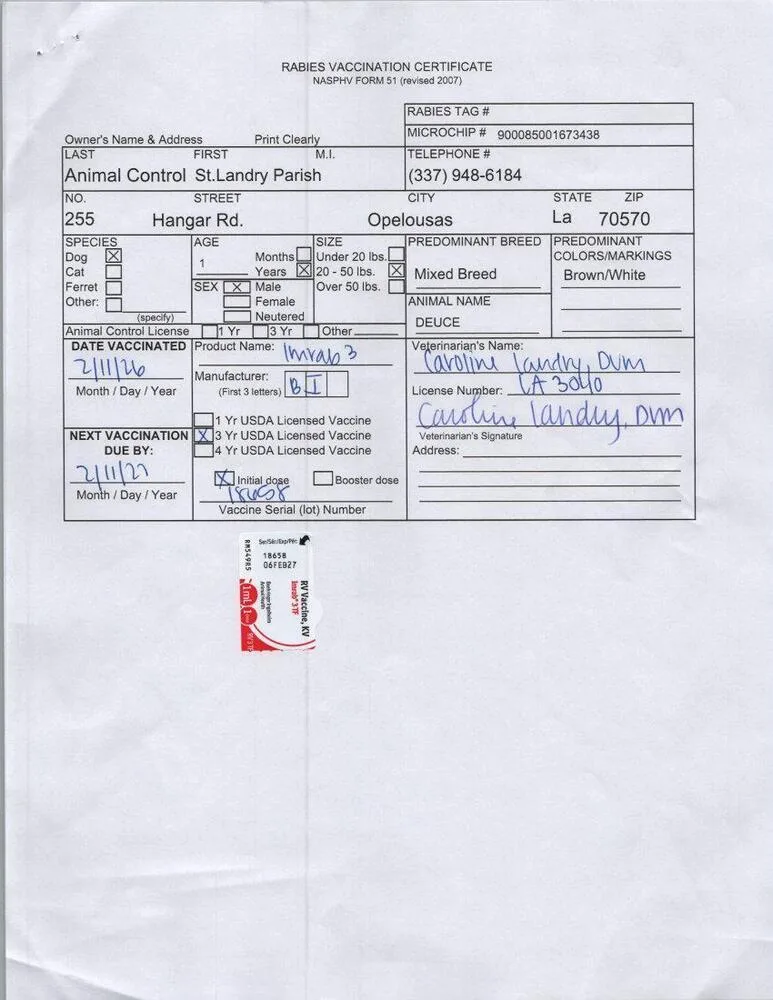 RABIES VACCINATION CERTIFICATE
NASPHV FORM 51 (revised 2007)
RABIES TAG #
Owner's Name & Address Print Clearly
MICROCHIP # 900085001673438
LAST FIRST M.I.
TELEPHONE #
Animal Control St.Landry Parish
(337) 948-6184
NO. STREET CITY STATE ZIP
255 Hangar Rd. Opelousas La 70570
SPECIES
Dog X
Cat
Ferret
Other:
(specify)
AGE
1
Months
Years X
SEX X Male
Female
Neutered
SIZE
Under 20 lbs.
20 - 50 lbs. X
Over 50 lbs.
PREDOMINANT BREED
Mixed Breed
ANIMAL NAME
DEUCE
PREDOMINANT
COLORS/MARKINGS
Brown/White
Animal Control License 1 Yr 3 Yr Other
DATE VACCINATED
2/11/26
Month / Day / Year
Product Name: Imrab 3
Manufacturer: B I
(First 3 letters)
Veterinarian's Name:
Caroline Landry, DVM
License Number: LA 3040
Caroline Landry, DVM
Veterinarian's Signature
Address:
NEXT VACCINATION
DUE BY:
2/11/27
Month / Day / Year
1 Yr USDA Licensed Vaccine
X 3 Yr USDA Licensed Vaccine
4 Yr USDA Licensed Vaccine
X Initial dose Booster dose
18658
Vaccine Serial (lot) Number
Ser/Sér/Exp/Péc:
18658
06FEB27
RM549R5
RV Vaccine, KV
Imrab® 3 TF
Boehringer Ingelheim
Animal Health
1mL 1